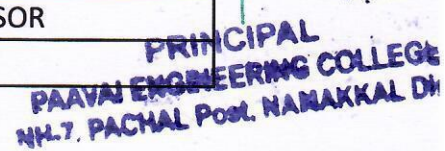 SOR
PRINCIPAL
PAAVAI ENGINEERING COLLEGE
NH-7, PACHAL Post, NAMAKKAL Di